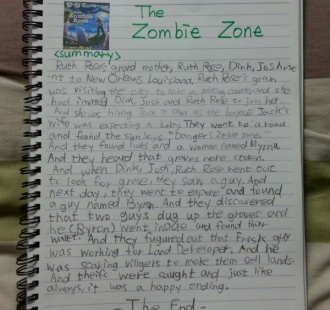 The
Zombie Zone
<summary>
Ruth Rose's grand mother, Ruth Rose, Dink, Josh we
nt to New Orleans Louisiana, Ruth Rose's gram
was visiting the city to take a course and she
had invited Dink, Josh and Ruth Rose to join her.
And
wife was expecting a baby. They went to a road
and found the sign says "Danger. Leave some"
And they found huts and a woman named Myrna.
And they heard that graves were stolen.
And when Dink, Josh, Ruth Rose went out
to look for they saw a guy. And
next day, they went to explore and found
a guy named Byron. And they discovered
that two guys dug up the graves and
he (Byron) went inside and found their
wallet. And they figured out that guy
was working for Land Developer. And he
was scaring villigers to make them sell lands.
And were caught and just like
always, it was a happy ending.
- The End -